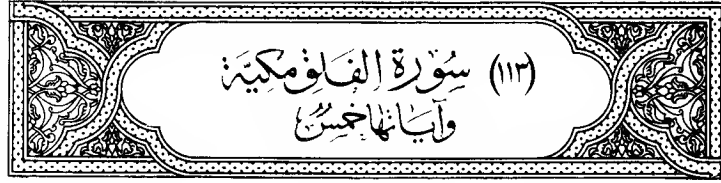 (١١٣) سُوْرَة الفَلَقِ مَكِيَّة
وَآيَاتُهَا خَمْسٌ